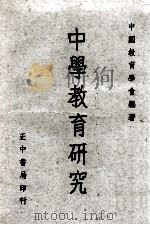 中國教育學會編著
中學教育研究
正中書局印行
www.duxiu.com